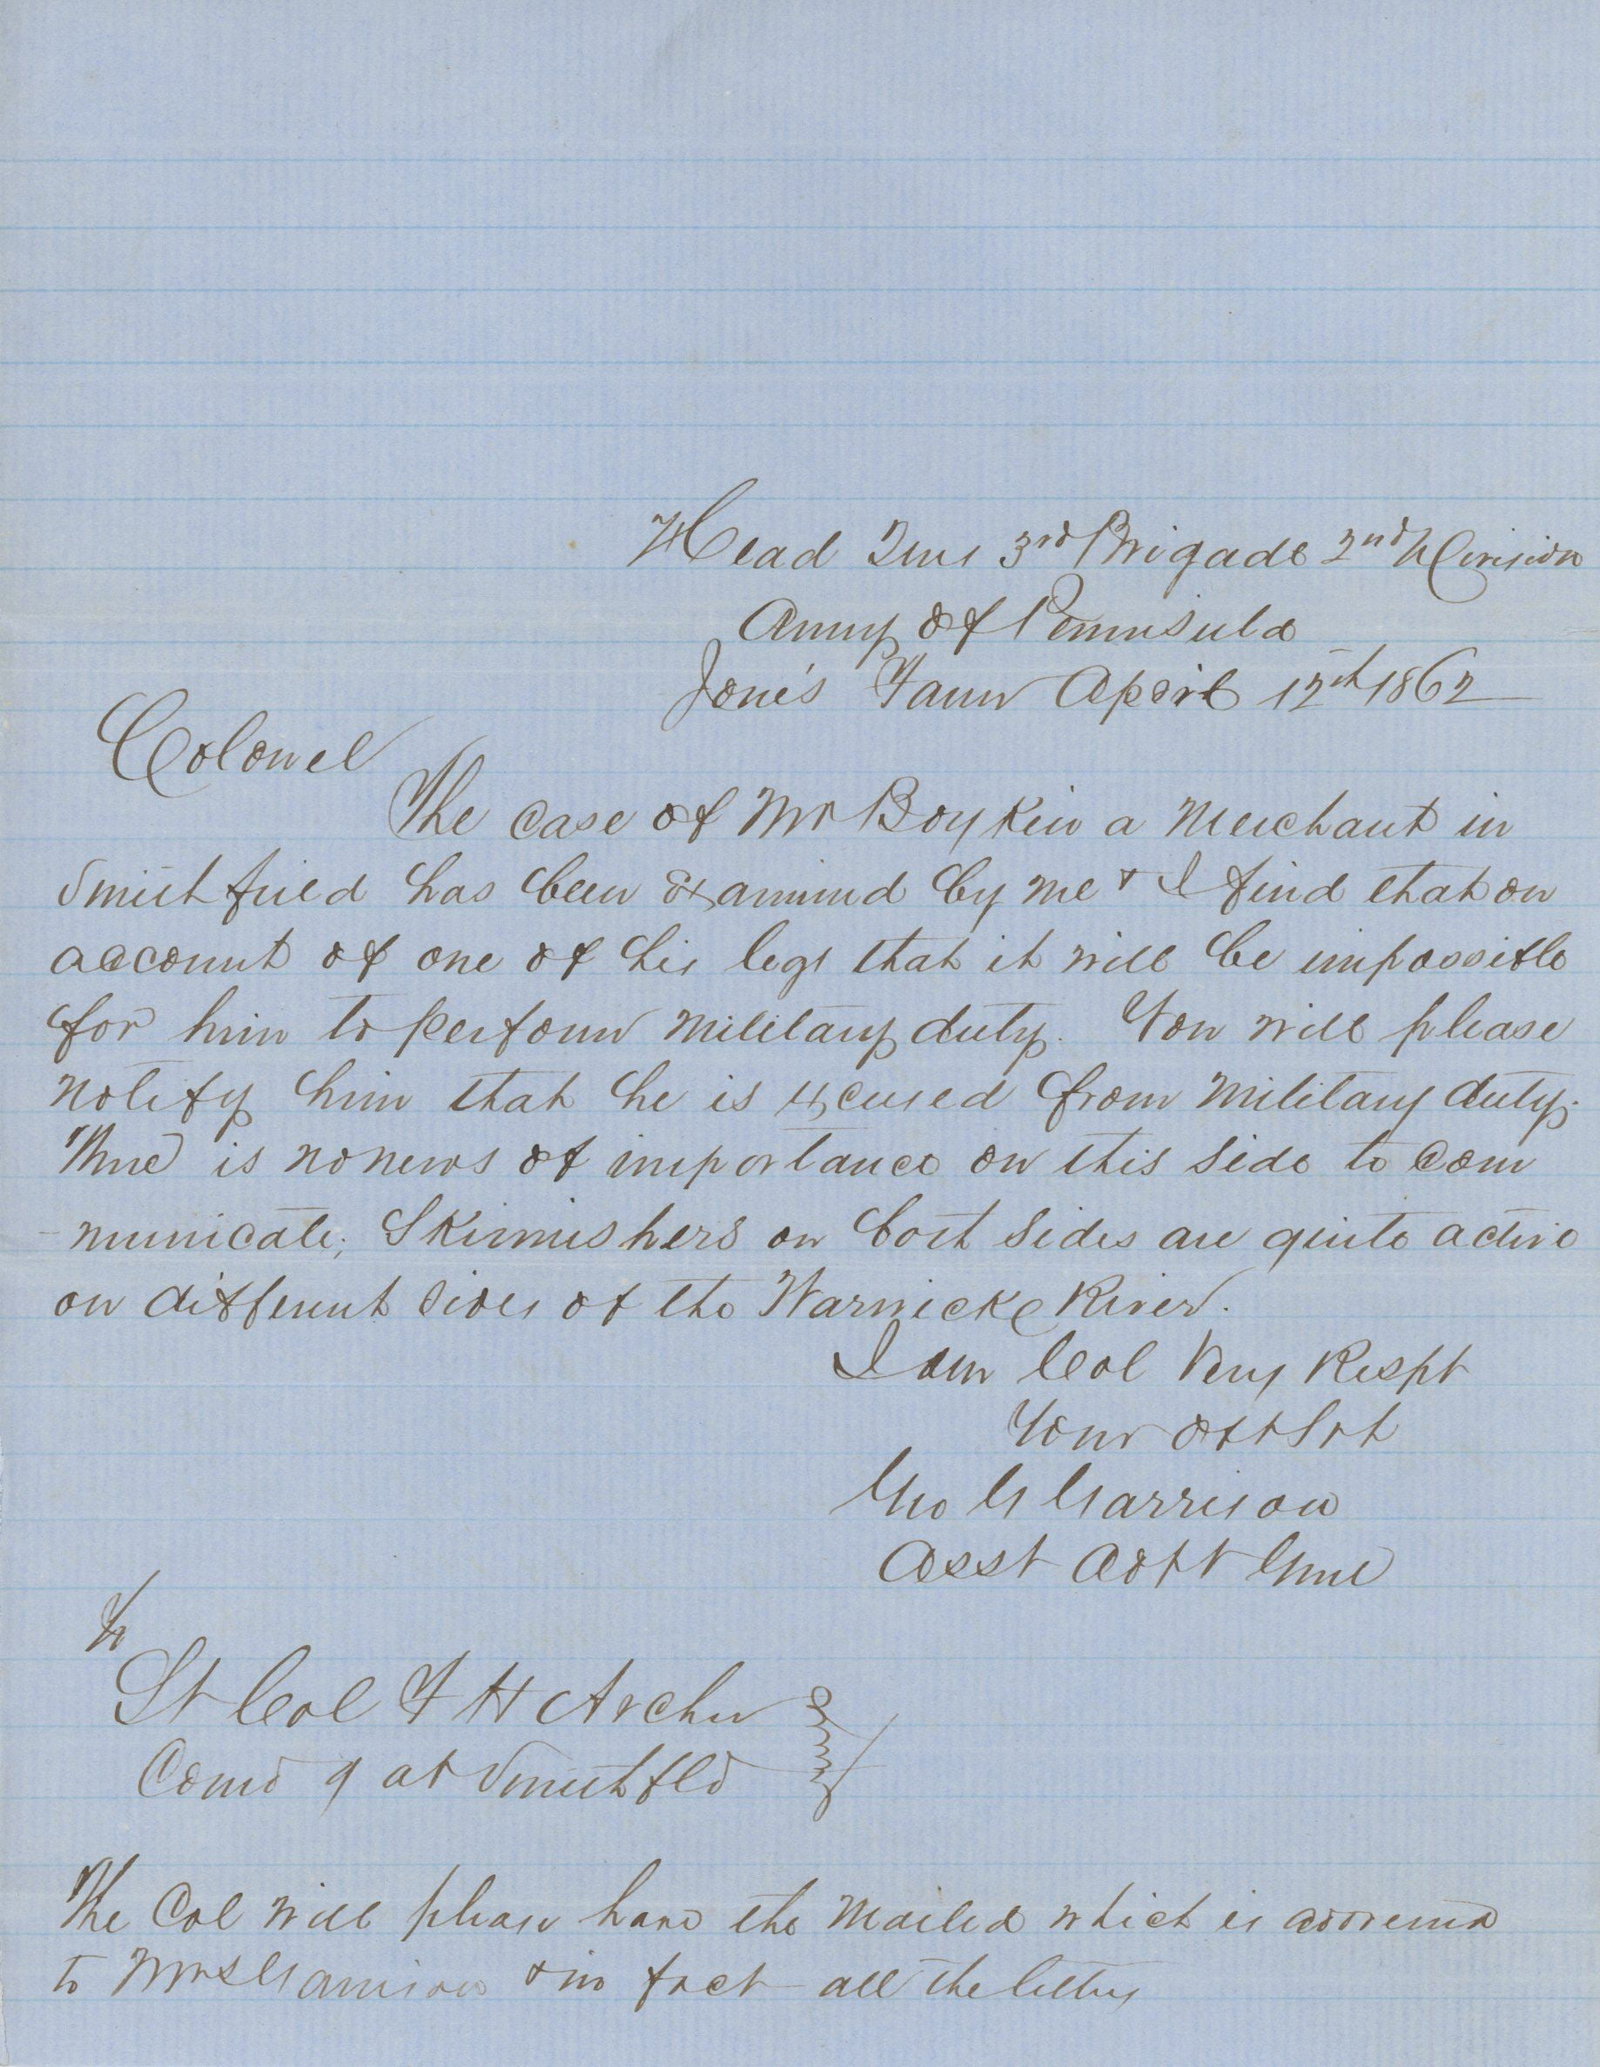 Head Qurs 3rd Brigade 2nd Division
Army of Peninsula
Jones Farm April 12th 1862
Colonel
The case of Mr Boykin a Merchant in
Smithfield has been examined by me & I find that on
account of one of his legs that it will be impossible
for him to perform Military duty. You will please
notify him that he is excused from Military duty.
There is no news of importance on this side to com
-municate; Skirmishers on both sides are quite active
on different sides of the Warwicke River.
I am Col Very Respt
Your Obt Svt
Geo G Garrison
Asst Adjt Genl
To
Lt Col F H Archer
Comd g at Smithfld
The Col will please have the Mailed which is addressed
to Mrs Garrison & in fact all the letters